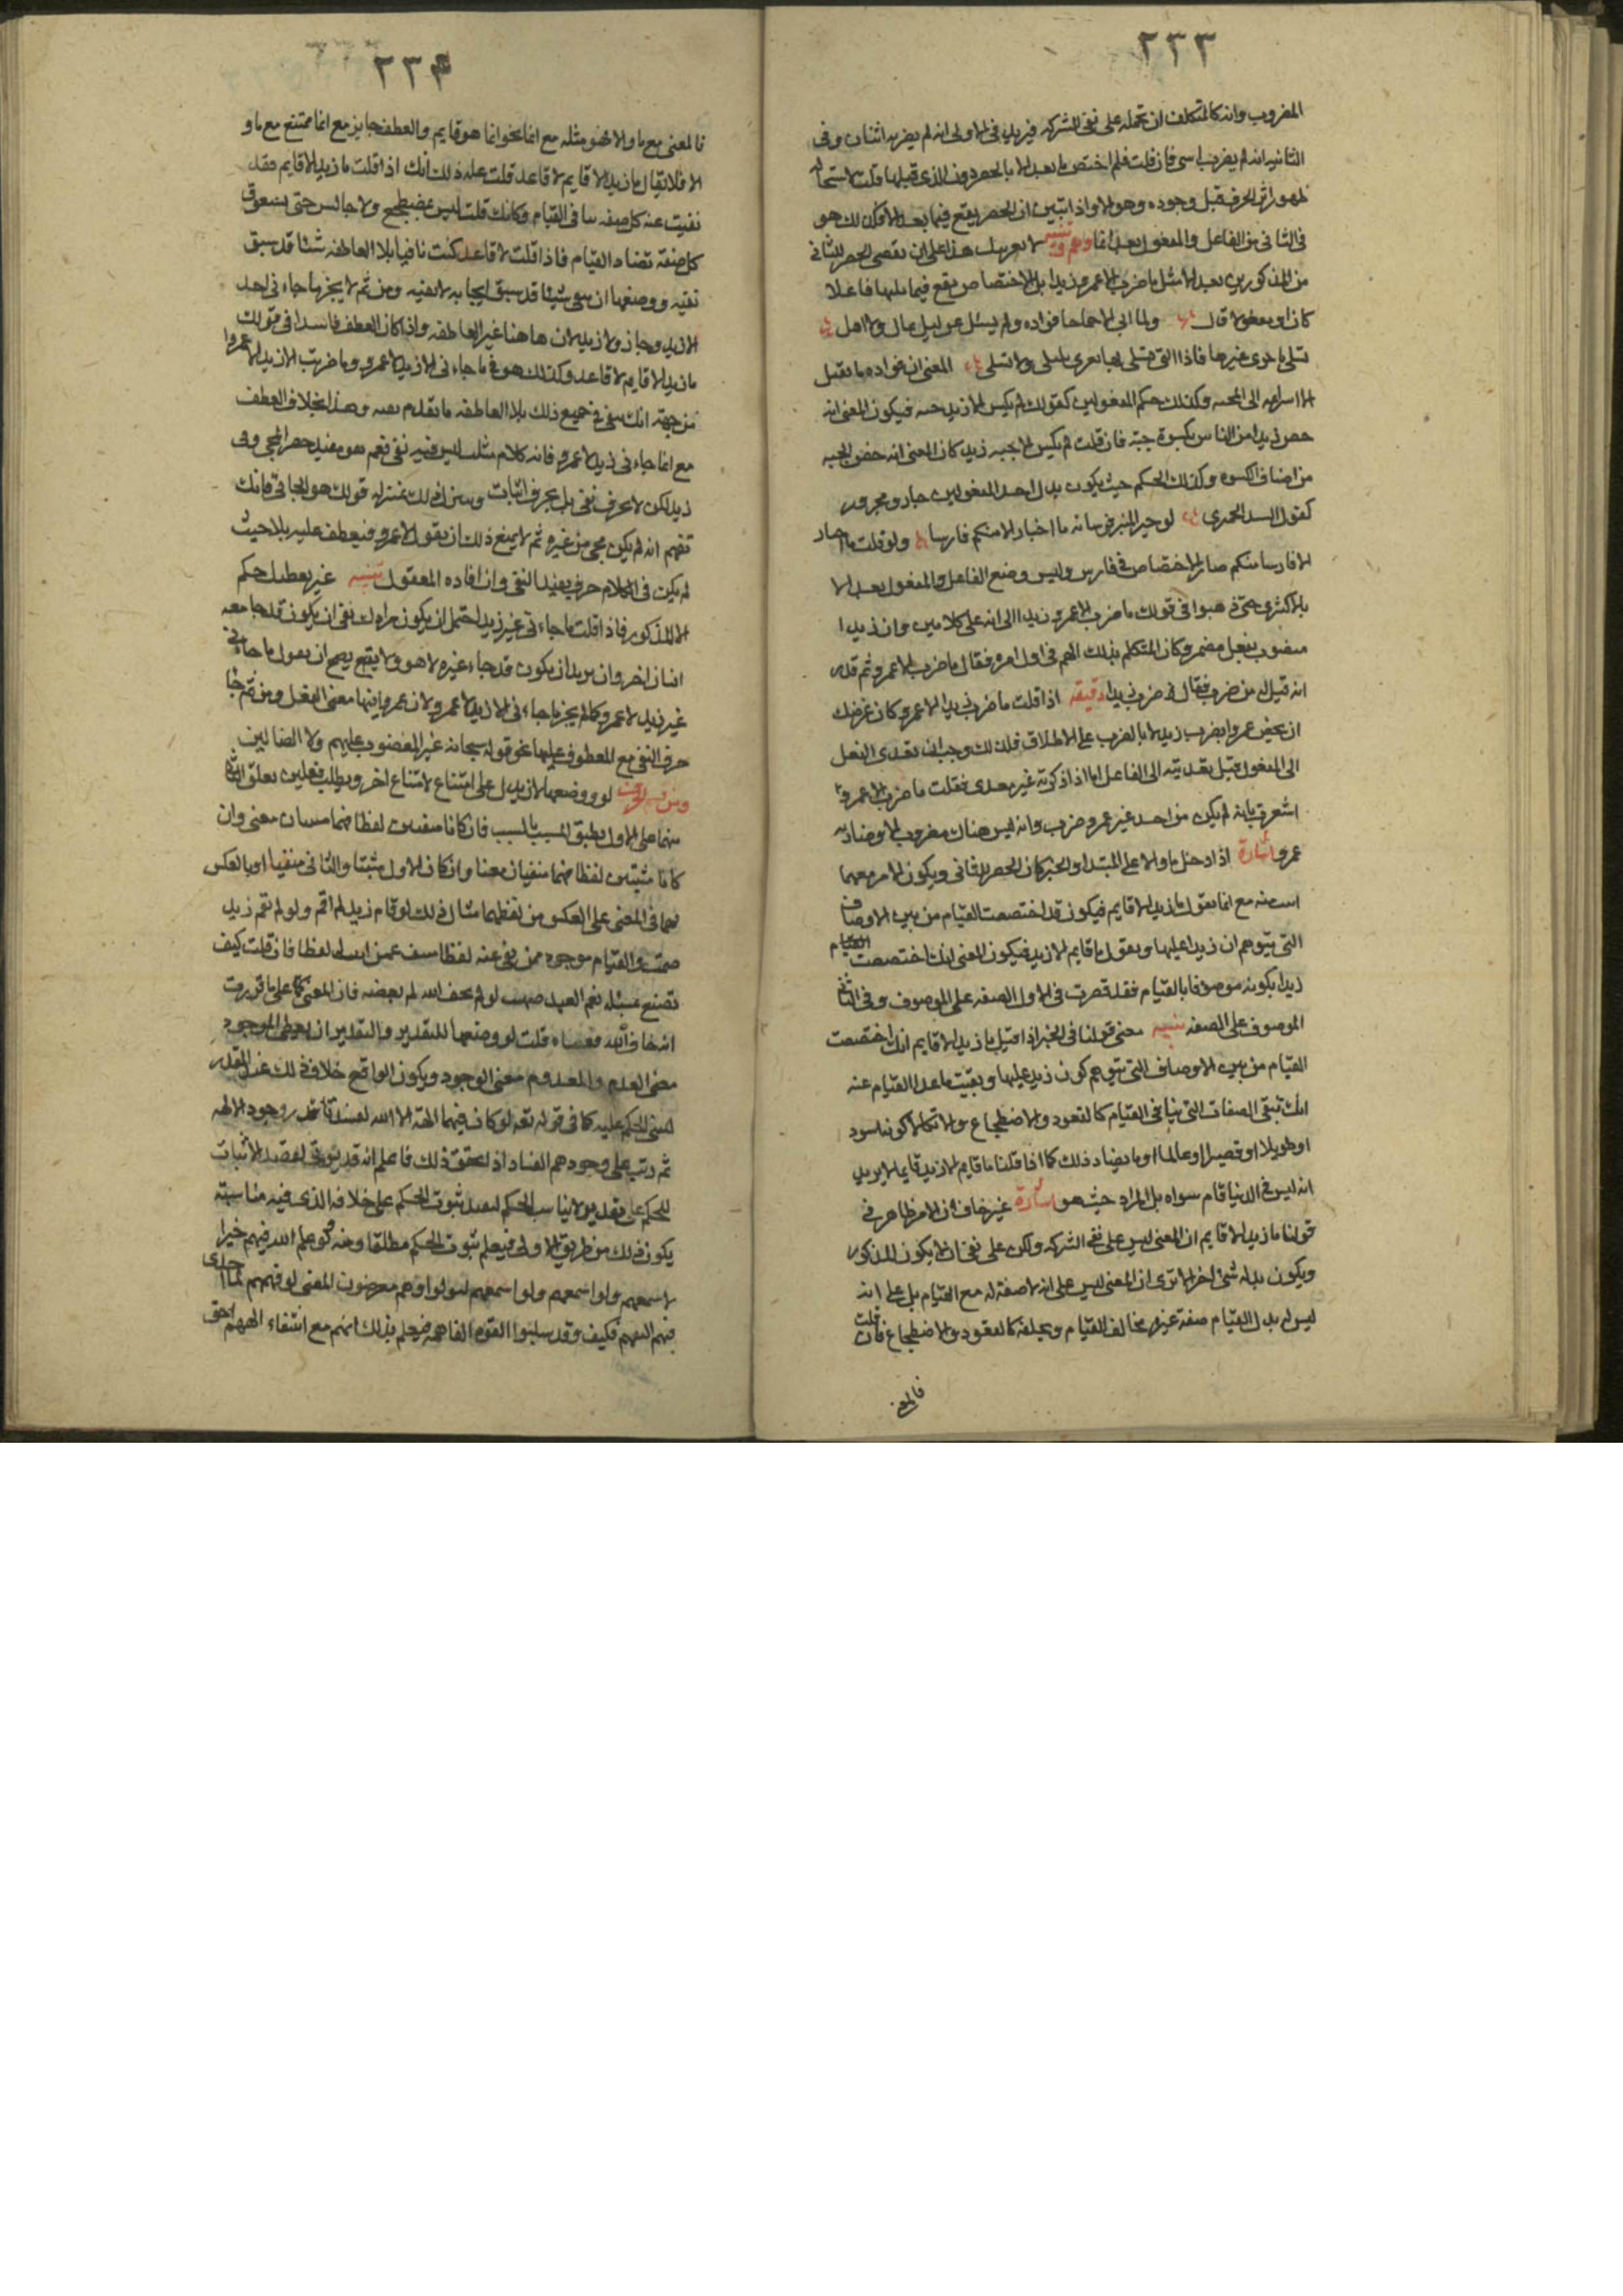 ٢٣٣
المضروب وانه كالمتكلف ان تحمله على نفى الشركه فيريد فى الاولى انه لم يضربه اثنان وفى
الثانيه انه لم يضرب سوى فان قلت فلم اختص ما بعد الا بالحصر دون الذى قبلها قلت لاستحاله
ظهور اثر الحرف قبل وجوده وهو الا واذا تبين ان الحصر يقع فيما بعد الا فكذلك هو
فى الثانى من الفاعل والمفعول بعد انما تنبيه لا هذا على ان الحصر للثانى
من المذكورين بعد الا مثل ما ضرب الا عمرو زيدا بل الاختصاص يقع فيما يليها فاعلا
كان او مفعولا قال ولما ابى الا جماحا فواده ولم يسل عن ليلى بمال ولا اهل
تسلى باخرى غيرها فاذا التى تسلى بها تغرى بليلى ولا تسلى المعنى ان فواده ما تقبل
الا الى المحبه وكذلك حكم المفعولين كقولك لم يكس الا زيد جبه فيكون المعنى انه
خص زيدا من الناس بكسوة جبة فان قلت لم يكس الا جبه زيد كان المعنى انه خص الجبه
من اصناف الكسوه وكذلك الحكم حيث يكون بدل احد المفعولين جار ومجرور
كقول السيد الحميرى لو خير المنبر فرسانه ما اختار الا منكم فارسا ولو قلت ما اختار
الا فارسا منكم صار الاختصاص فى فارس وليس وضع الفاعل والمفعول بعد الا
بالاكثرى حتى ذهبوا فى قولك ما ضرب الا عمرو زيدا الى انه على كلامين وان زيدا
منصوب بفعل مضمر وكان المتكلم بذلك ابهم فى اول امره فقال ما ضرب الا عمرو ثم قدر
انه قيل له من ضرب فقال ضرب زيدا دقيقه اذا قلت ما ضرب زيدا الا عمرو كان غرضك
ان تخص عمرا بضرب زيد لا بالضرب على الاطلاق فلذلك وجب ان تعدى الفعل
الى المفعول قبل تعديته الى الفاعل اما اذا ذكرته غير معدى فقلت ما ضرب الا عمرو
اشعرت بانه لم يكن من احد غير عمرو ضرب وانه ليس هناك مضروب الا وضاربه
عمرو اشارة اذا دخل ما والا على المبتدا والخبر كان الحصر للثانى ويكون الامر معهما
مع انما تقول ما زيد الا قايم فيكون قد اختصصت القيام من بين الاوصاف
التى يتوهم ان زيدا عليها وبقول ما قايم الا زيد فيكون المعنى انك اختصصت القيام
زيدا بكونه موصوفا بالقيام فقد قصرت فى الاول الصفه على الموصوف وفى الثانى
الموصوف على الصفه تنبيه معنى قولنا فى الخبر اذا قيل ما زيد الا قايم انك اختصصت
القيام من بين الاوصاف التى يتوهم كون زيد عليها وبقيت ماعدا القيام عنه
انك تنفى الصفات التى ينافى القيام كالقعود والاضطجاع والاتكا لا كونه اسود
او طويلا او قصيرا وعالما او ما يضاد ذلك كما اذا قلنا ما قايم الا زيد فانا لا يريد
انه ليس فى الدنيا قام سواه بل المراد حيث هو اشارة غير خاف ان الامر ظاهر فى
قولنا ما زيد الا قايم ان المعنى ليس على نفى الشركه ولكن على نفى ان لا يكون المذكور
ويكون بدله شى اخر الا ترى ان المعنى ليس على انه لا صفة له مع القيام بل على انه
ليس له بدل القيام صفة غيره مخالف للقيام كالقعود والاضطجاع فان قلت
فالمعنى
٢٣٤
فالمعنى مع ما والا هو مثله مع انما نحو انما هو قايم والعطف جايز مع انما ممتنع مع ما و
الا فلا يقال ما زيد الا قايم لا قاعد قلت علة ذلك انك اذا قلت ما زيد الا قايم فقد
نفيت عنه كل صفه تنافى القيام فكانك قلت ليس بمضطجع ولا جالس حتى يستغرق
كل صفة تضاد القيام فاذا قلت لا قاعد كنت نافيا بلا العاطفه شيئا قد سبق
نفيه ووضعها ان تنفى شيئا قد سبق ايجابه لا نفيه ومن ثم لا يجز ما جاء نى احد
الا زيد وجاز ولا زيد لان هاهنا غير العاطفه واذا كان العطف فاسدا فى قولك
ما زيد الا قايم لا قاعد وكذلك هو فى ما جاء نى الا زيد لا عمرو وما ضربت الا زيدا لا عمروا
من جهة انك تنفى فى جميع ذلك بلا العاطفه ما تقدم نفيه وهذا بخلاف العطف
مع انما جاء نى زيد لا عمرو فانه كلام مثبت ليس فيه نفى نعم هو مفيد حصر المجى فى
زيد لكن لا بحرف نفى بل بحرف اثبات ومنزل ذلك بمنزله قولك هو الجائى فانك
تفهم انه لم يكن مجى من غيره ثم لا يمنع ذلك ان تقول لا عمرو فيعطف عليه بلا حيث
لم يكن فى الكلام حرف يفيد النفى وان افاده المعقول تنبيه غير يعطى حكم
الا المذكور فاذا قلت ما جاء نى غير زيد احتمل ان يكون مرادك نفى ان يكون قد جا معه
انسان اخر وان يريد ان يكون قد جاء غيره لا هو ولا يقع يصح ان يقول ما جاء نى
غير زيد لا عمرو كما لم يجز ما جاء نى الا زيد لا عمرو لان غير فيها معنى الفعل ومن ثم جا
حرف النفى مع المعطوف عليها نحو قوله سبحانه غير المغضوب عليهم ولا الضالين
ومن لو ووضعها لان يدل على امتناع لامتناع اخر ويطلب فعلين يعلق الثانى
منهما على الاول تعليق المسبب بالسبب فان كانا منفيين لفظا فهما مثبتان معنى وان
كانا مثبتين لفظا فهما منفيان معنا وان كان الاول مثبتا والثانى منفيا او بالعكس
فهما فى المعنى على العكس من لفظهما مثال ذلك لو قام زيد لم اقم ولو لم يقم زيد
قمت والقيام موجود ممن نفى عنه لفظا منتف عمن اثبت له لفظا فان قلت كيف
تصنع بمسئله نعم العبد صهيب لو لم يخف الله لم يعصه فان المعنى على ما قررت
انه خاف الله فعصاه قلت لو وضعها للتقدير والتقدير ان يعطى الموجود
معنى العدم والمعدوم معنى الوجود ويكون الواقع خلاف ذلك عند المقدر
لبنى الحكم عليه كما فى قوله تعه لو كان فيهما الهة الا الله لفسدتا قدر وجود الالهه
ثم رتب على وجودهم الفساد اذا تحقق ذلك فاعلم انه قد يؤتى لقصد الاثبات
للحكم على تقدير لا يناسب الحكم ليفيد ثبوت الحكم على خلافه الذى فيه مناسبة
يكون ذلك من طريق الاولى فيعلم ثبوت الحكم مطلقا ومنه ولو علم الله فيهم خيرا
لاسمعهم ولو اسمعهم لتولوا وهم معرضون المعنى لو فهمهم لما اجدى
فيهم التفهيم فكيف وقد سلبوا القوه الفاهمه فيعلم بذلك انهم مع انتفاء الفهم احق